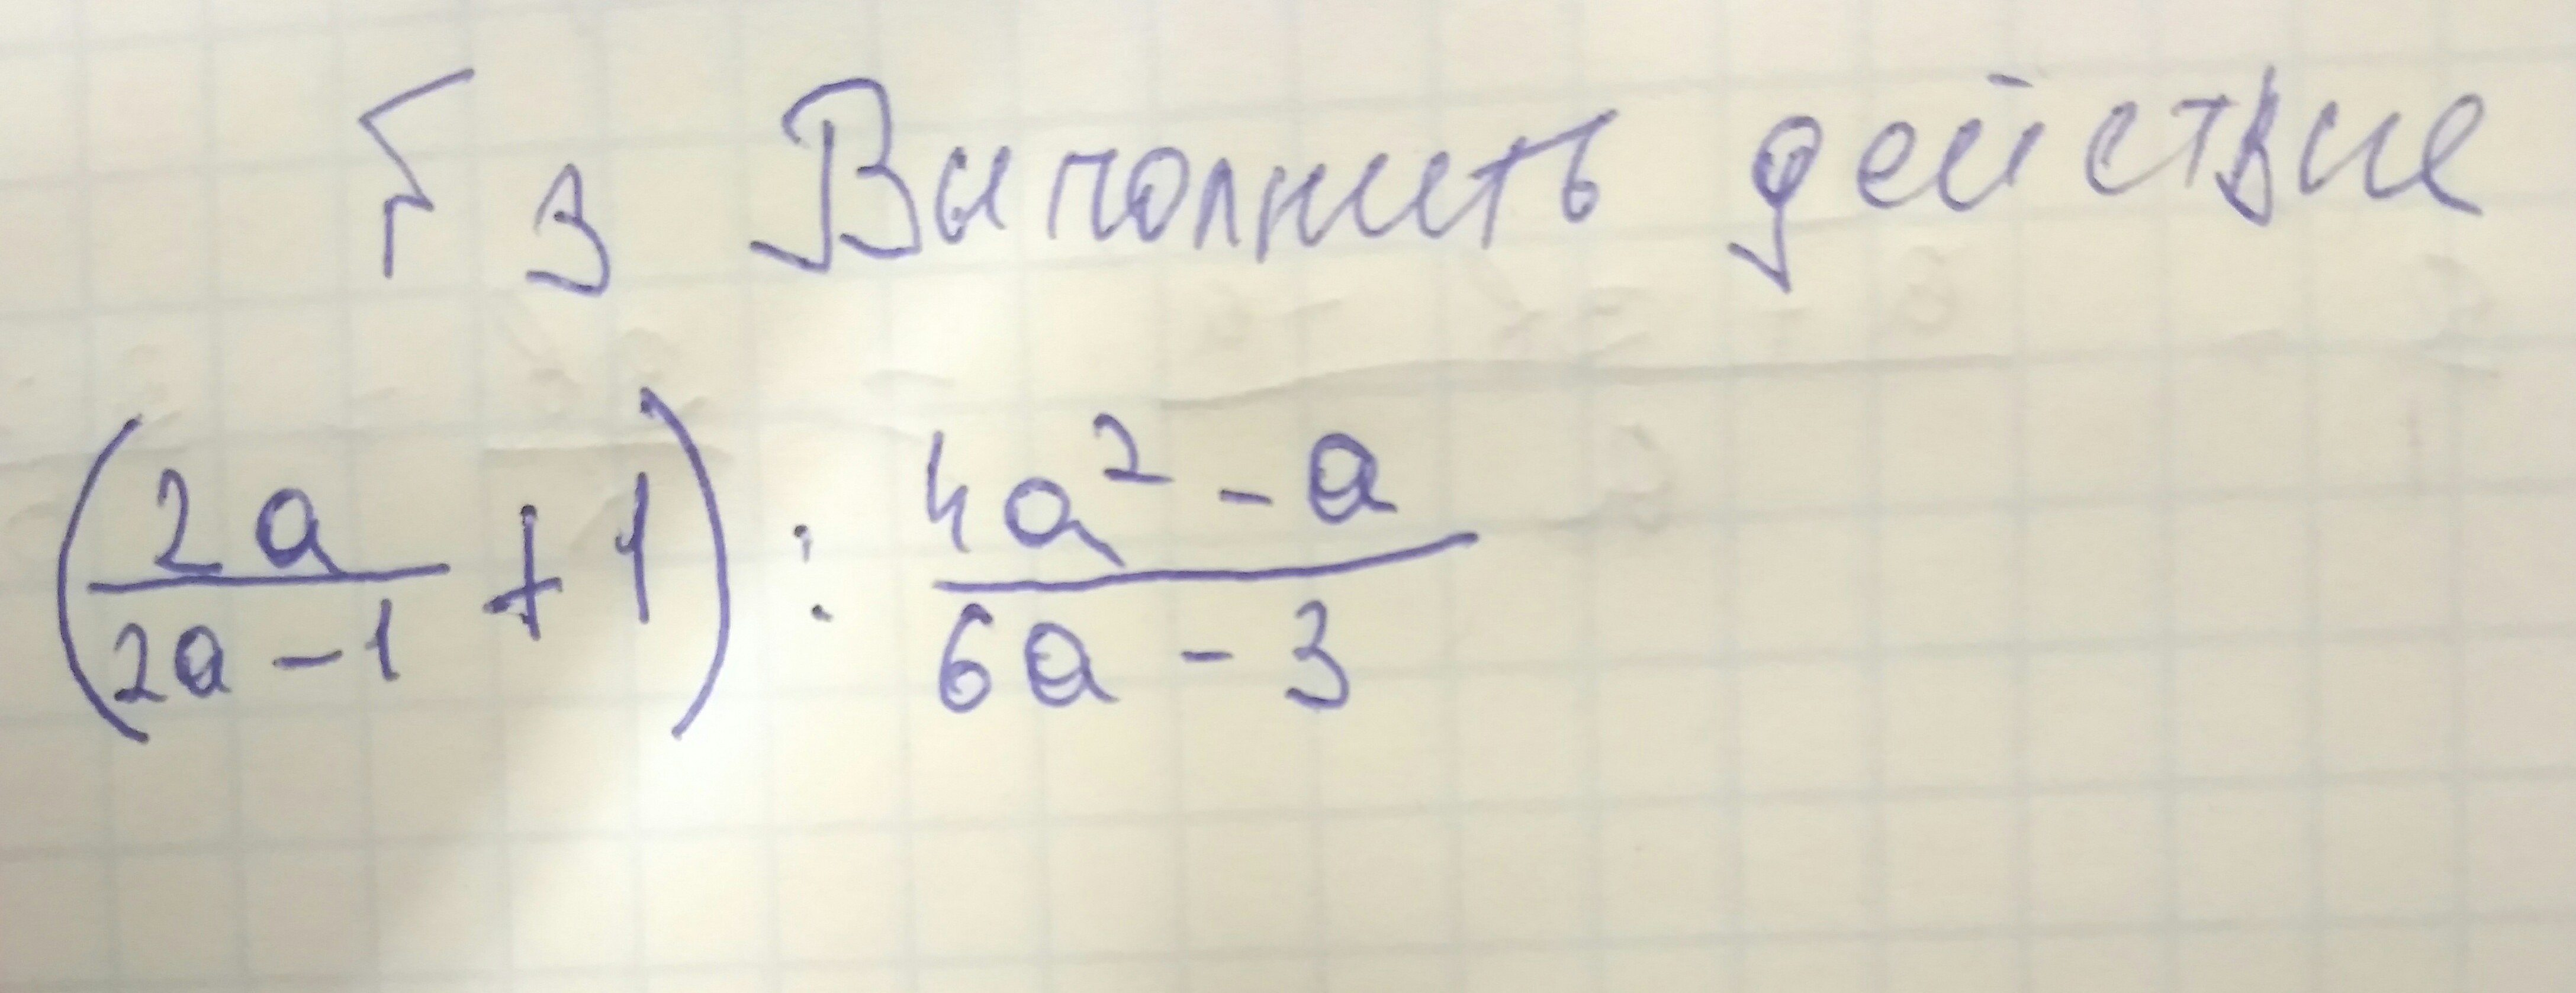 Г з Выполнить действие
(2a/(2a-1) + 1) : (4a² - a)/(6a - 3)